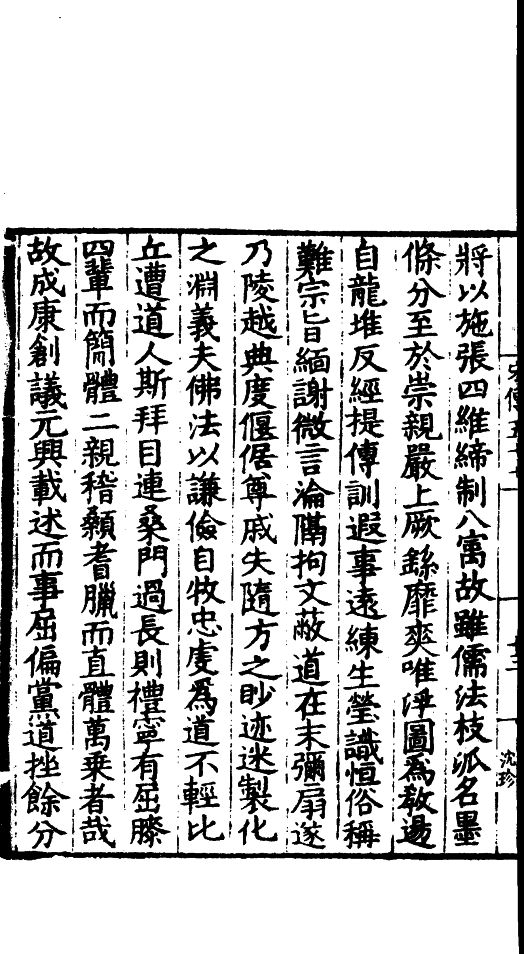 將以施張四維締制八寓故雖儒法枝派名墨
條分至於崇親嚴上厥繇靡爽唯浮圖為教逷
自龍堆反經提傳訓遐事遠練生瑩識恒俗稱
難宗旨緬謝微言淪隔拘文蔽道在末彌扇遂
乃陵越典度偃倨尊戚失隨方之眇迹迷製化
之淵義夫佛法以謙儉自牧忠虔為道不輕比
丘遭道人斯拜目連桑門過長則禮寧有屈膝
四輩而簡體二親稽顙耆臘而直體萬乗者哉
故成康創議元興載述而事屈偏黨道挫餘分
沈珍